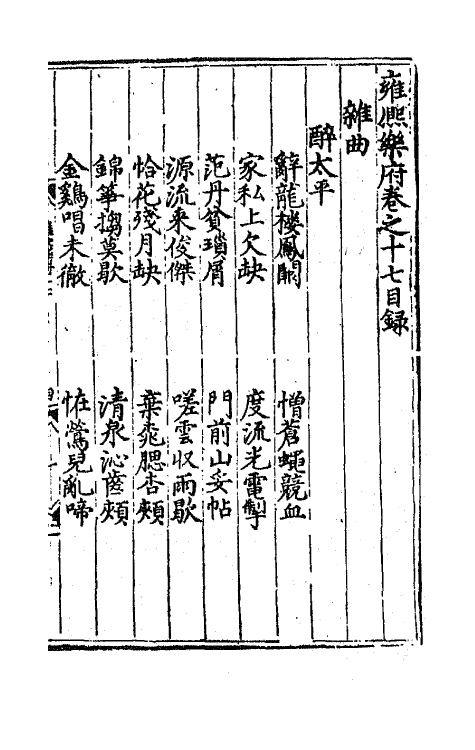 雍熈樂府卷之十七目録
雜曲
醉太平
辭龍楼鳳闕　憎蒼蠅競血
家私上欠缺　度流光電掣
范丹貧瑣屑　門前山妥帖
源流来俊傑　嗟雲収雨歇
恰花殘月缺　葉桃腮杏頰
錦筝搊莫歇　清泉沁齒頰
金鷄唱未徹　恠鶯兒亂啼